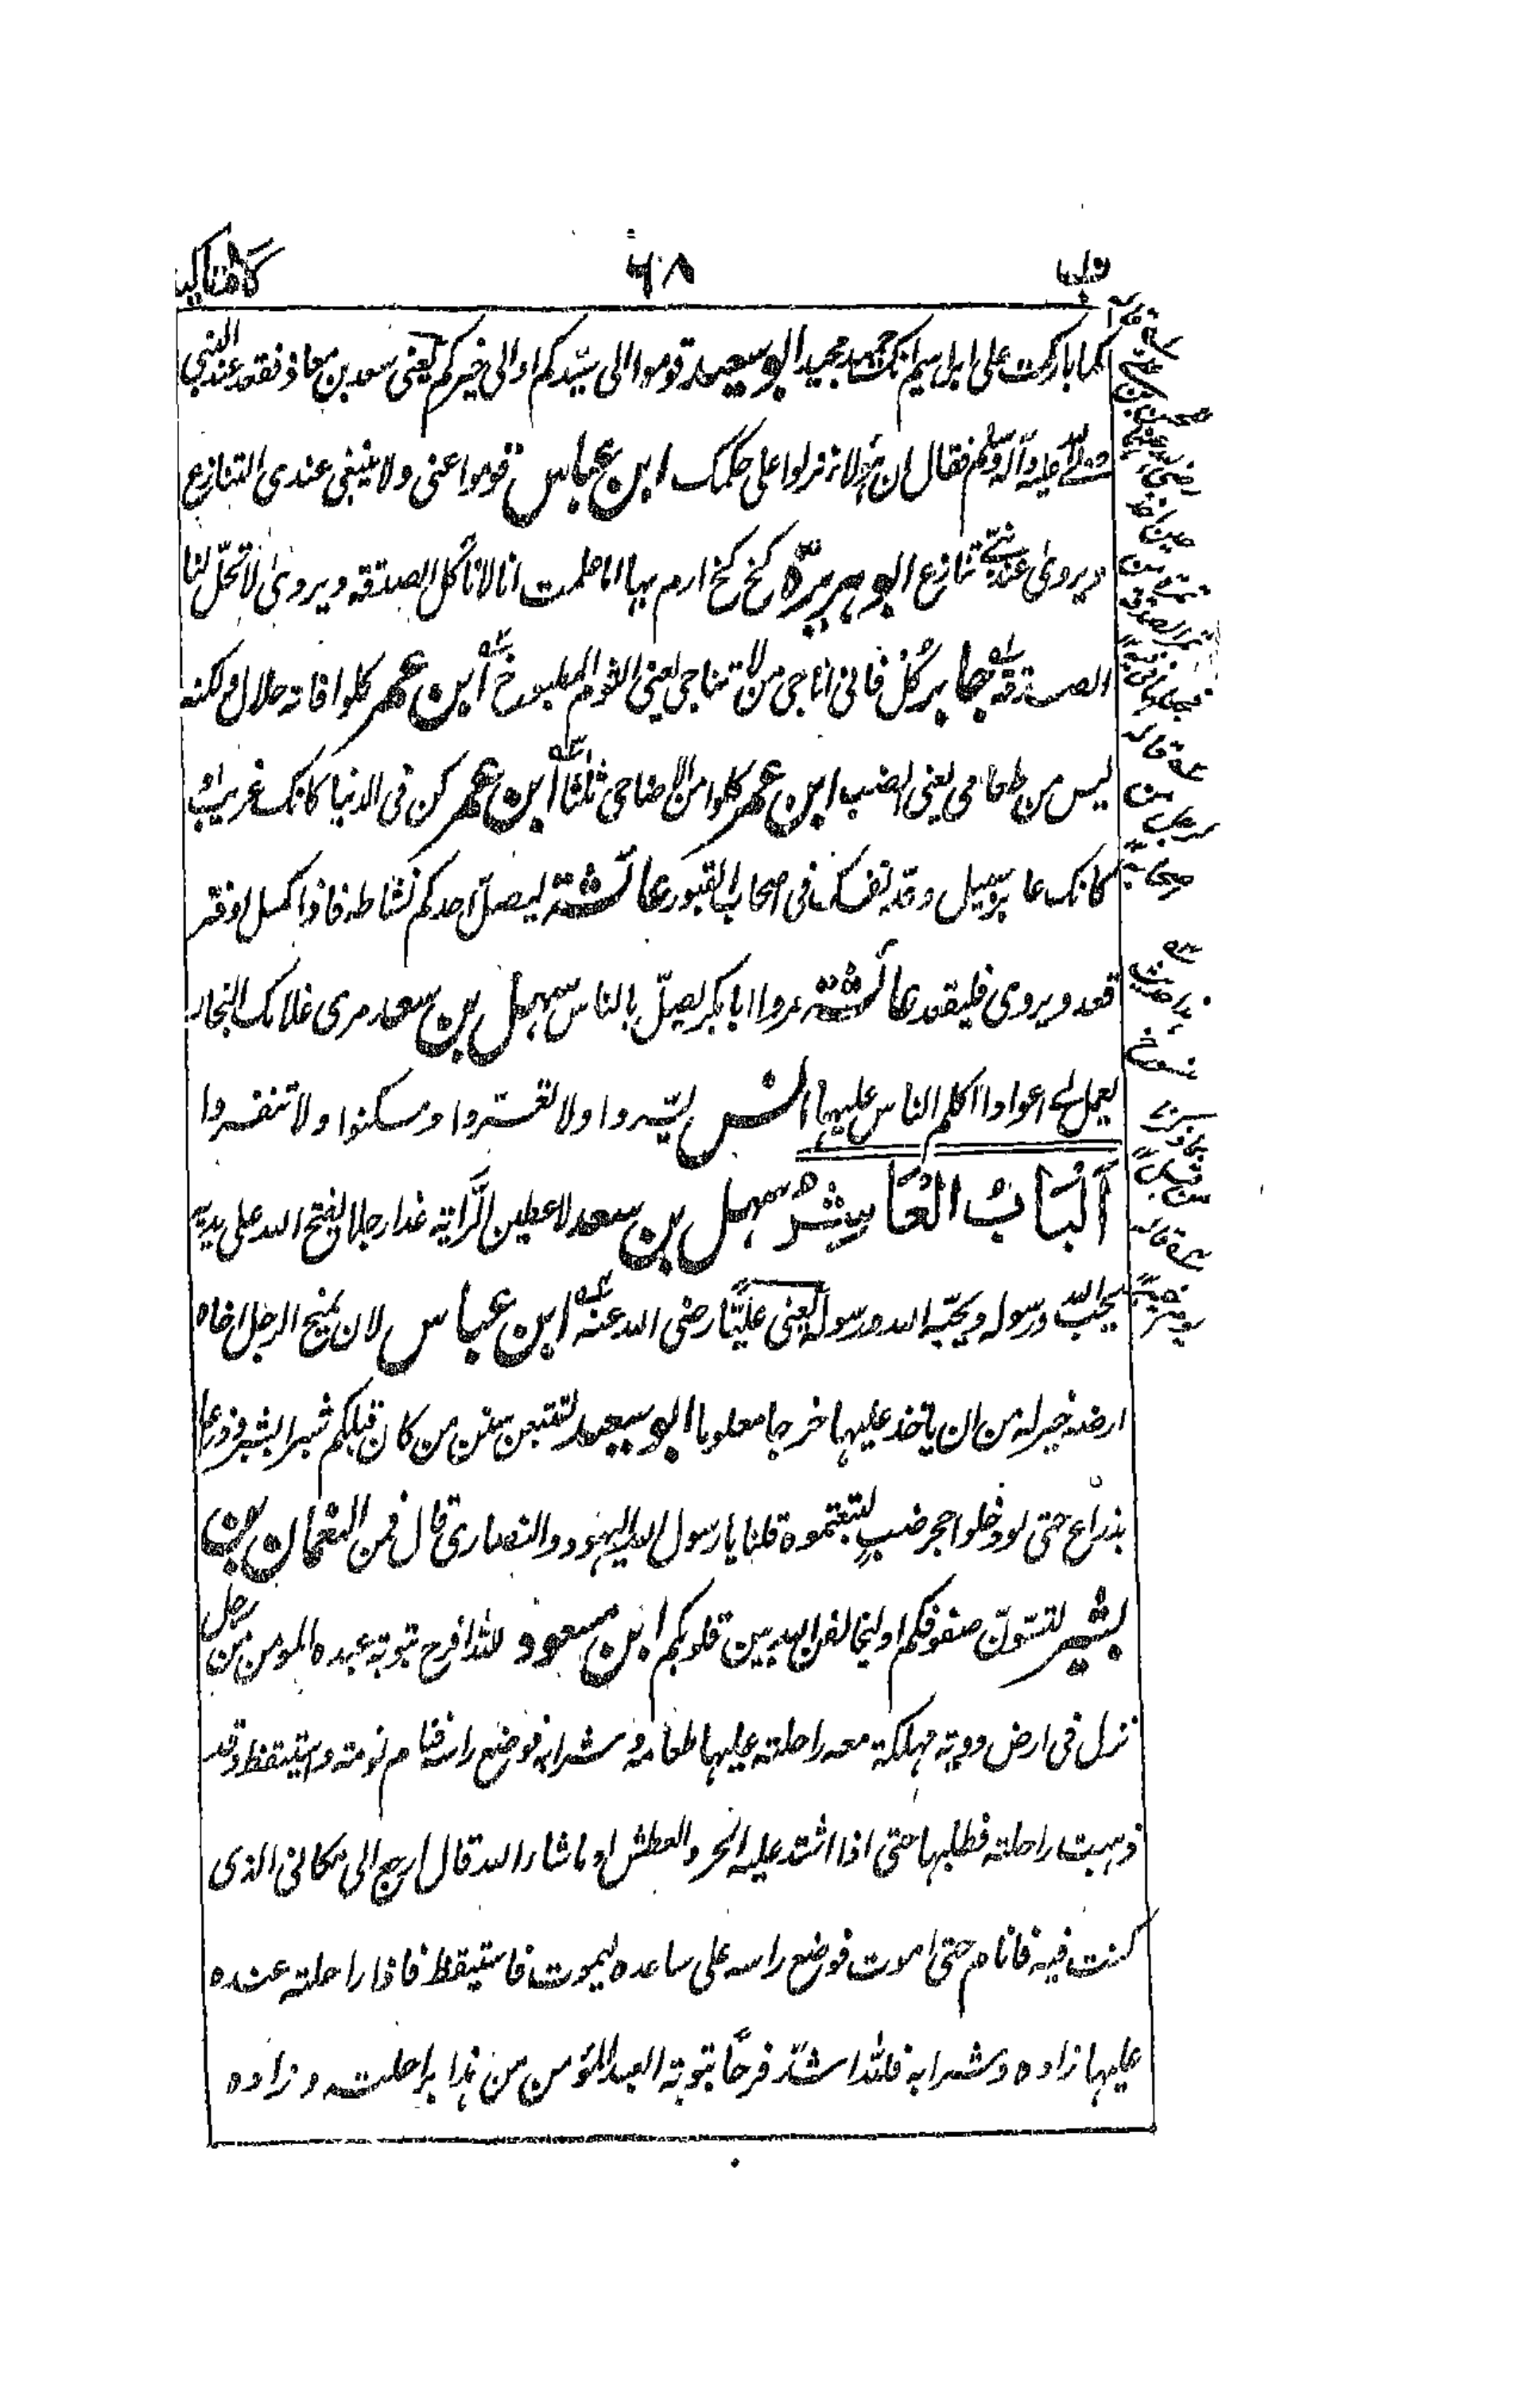 ٦٨
كما باركت على ابراهيم انك حميد مجيد ابو سعيد قوموا الى سيّدكم او الى خيركم يعنى سعد بن معاذ فقعد عند النبى
صلى الله عليه وآله وسلم فقال ان هؤلاء نزلوا على حكمك ابن عباس قوموا عنى ولا ينبغى عندى التنازع
ويروى عند نبىّ تنازع ابو هريرة كخ كخ ارم بها اما علمت انا لا ناكل الصدقه ويروى لا تحلّ لنا
الصدقة جابر كُل فانى اناجى من لا تناجى يعنى الثوم المطبوخ ابن عمر كلوا فانه حلال ولكنه
ليس من طعامى يعنى الضب ابن عمر كلوا من الاضاحى ثلثًا ابن عمر كن فى الدنيا كانك غريب او
كانك عابر سبيل وعد نفسك فى اصحاب القبور عائشة ليصلّ احدكم نشاطه فاذا كسل او فتر
قعد ويروى فليقعد عائشة مروا ابا بكر يصلّ بالناس سهل بن سعد مرى غلامك النجار
يعمل لى اعوادا اكلم الناس عليها انس يسّروا ولا تعسّروا وسكنوا ولا تنفروا
اَلْبَابُ الْعَاشِرُ سهل بن سعد لاعطين الرّاية غدا رجلا يفتح الله على يديه
يحب الله ورسوله ويحبّه الله ورسوله يعنى عليًّا رضى الله عنه ابن عباس لان يمنح الرجل اخاه
ارضه خير له من ان ياخذ عليها خرجا معلوما ابو سعيد لتتبعن سنن من كان قبلكم شبرا بشبر وذراعا
بذراع حتى لو دخلوا جحر ضب لتبعتموه قلنا يا رسول الله اليهود والنصارى قال فمن النعمان بن
بشير لتسوّنّ صفوفكم او ليخالفن الله بين قلوبكم ابن مسعود لله افرح بتوبة عبده المومن من رجل
نزل فى ارض دوية مهلكة معه راحلته عليها طعامه وشرابه فوضع راسه فنام نومة واستيقظ وقد
ذهبت راحلته فطلبها حتى اذا اشتد عليه الحر والعطش او ما شاء الله قال ارجع الى مكانى الذى
كنت فيه فانام حتى اموت فوضع راسه على ساعده ليموت فاستيقظ فاذا راحلته عنده
عليها زاده وشرابه فالله اشدّ فرحًا بتوبة العبد المؤمن من هذا براحلته وزاده